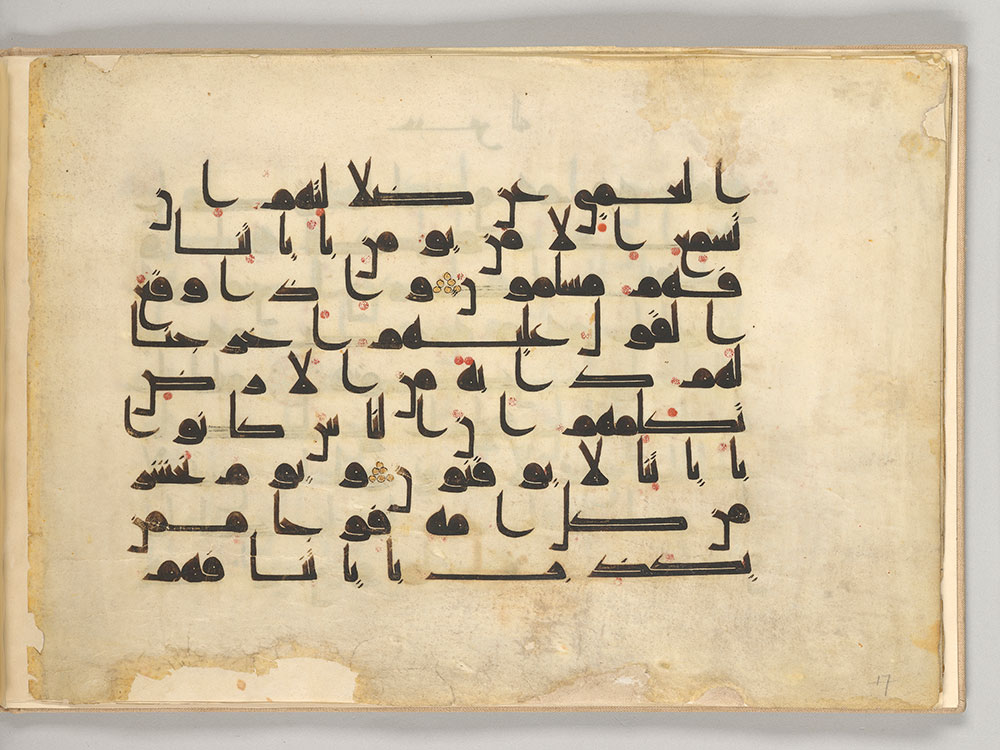 العمى عن ضللتهم ان
تسمع الا من يومن باياتنا
فهم مسلمون واذا وقع
القول عليهم اخرجنا
لهم دابة من الارض
تكلمهم ان الناس كانوا
باياتنا لا يوقنون ويوم نحشر
من كل امة فوجا ممن
يكذب باياتنا فهم
17